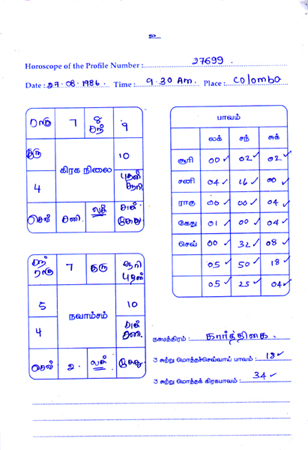 உ
Horoscope of the Profile Number : 27699
Date : 27-08-1986 Time : 9.30 Am. Place : Colombo
ராகு 7 8 சந் 9
குரு கிரக நிலை 10
4 புதன் சூரி
செவ் சனி லக்
சந் ராகு 7 குரு சூரி புதன்
5 நவாம்சம் 10
4
செவ் 2 லக்
பாவம்
லக் சந் சுக்
சூரி 00 ✓ 02 ✓ 02 ✓
சனி 04 ✓ 16 ✓ 00 ✓
ராகு 00 ✓ 00 ✓ 04 ✓
கேது 01 ✓ 00 ✓ 04 ✓
செவ் 00 ✓ 32 ✓ 08 ✓
05 ✓ 50 ✓ 18 ✓
05 ✓ 25 ✓ 04 ✓
நட்சத்திரம் : கார்த்திகை.
3 சுற்று மொத்தச்செவ்வாய் பாவம் : 18 ✓
3 சுற்று மொத்தக் கிரகபாவம் : 34 ✓